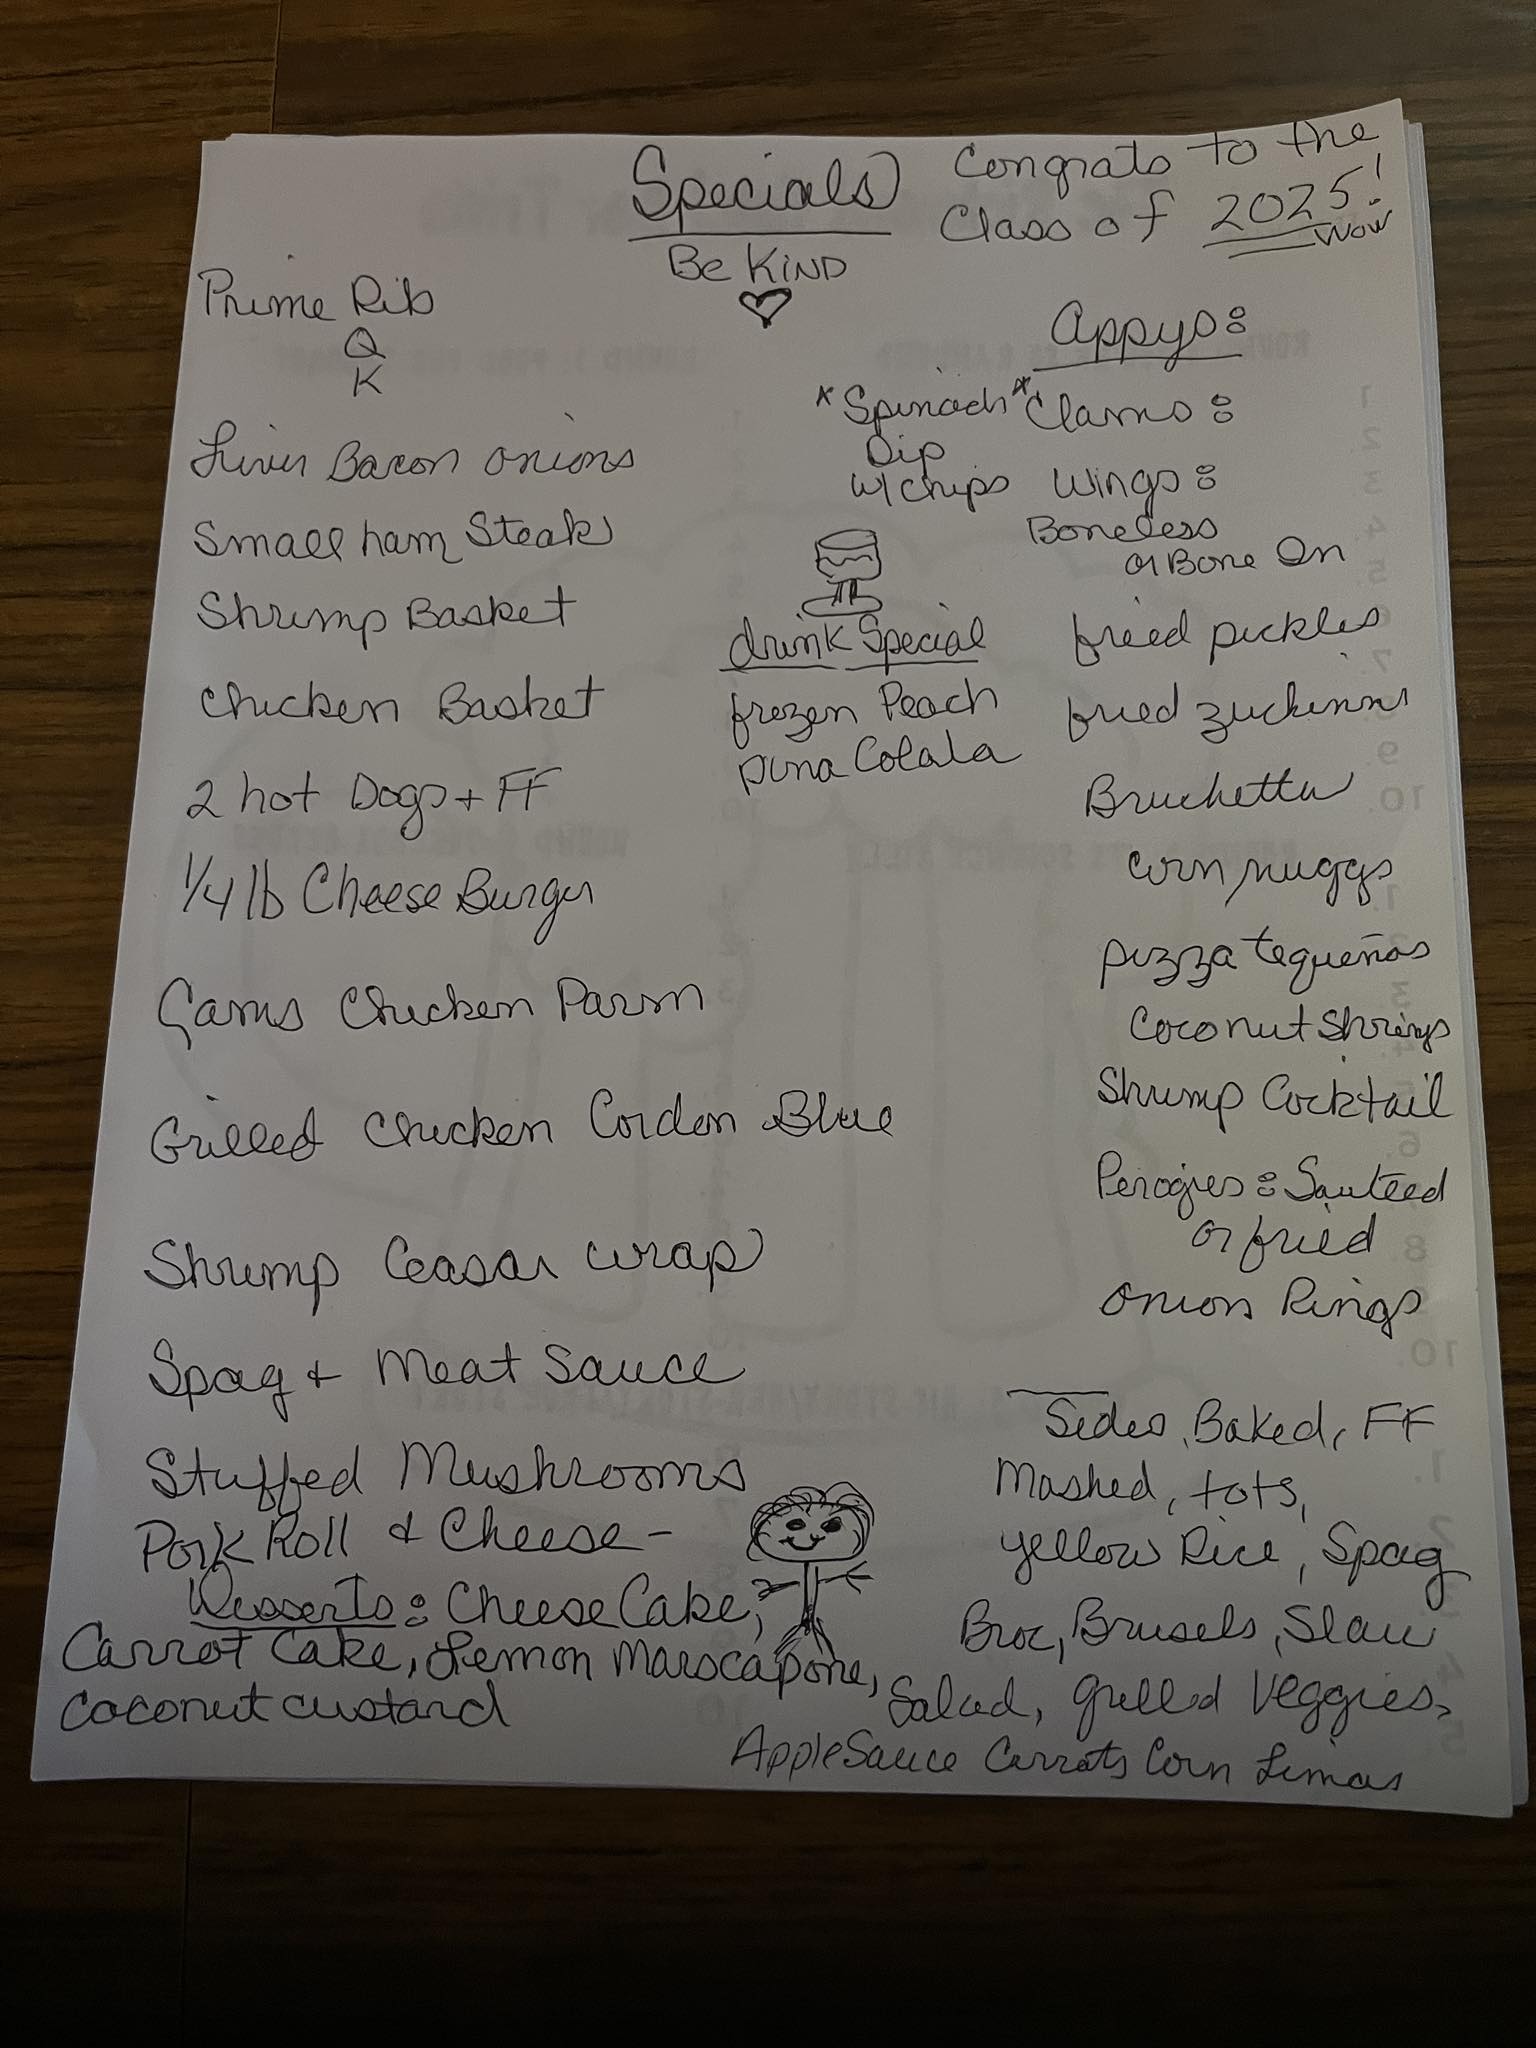 Specials
Be KIND
Congrats to the
Class of 2025!
Wow
Prime Rib
Q
K
Liver Bacon onions
Small ham Steak
Shrimp Basket
Chicken Basket
2 hot Dogs + FF
1/4 lb Cheese Burger
Chicken Parm
Grilled Chicken Cordon Blue
Shrimp Ceasar wrap
Spag + Meat Sauce
Stuffed Mushrooms
Pork Roll & Cheese -
Desserts: Cheese Cake,
Carrot Cake, Lemon Marscapone,
Coconut custard
drink Special
frozen Peach
pina Colala
Appys:
* Spinach
Dip
w/ chips
* Clams:
Wings:
Boneless
or Bone On
fried pickles
fried zuckinni
Bruchetta
corn nuggs
pizza tequeños
Coconut Shrimp
Shrimp Cocktail
Perogies: Sauteed
or fried
onion Rings
Sides, Baked, FF
Mashed, tots,
yellow Rice, Spag
Broc, Brusels, Slaw
Salad, grilled Veggies,
AppleSauce Carrots Corn Limas